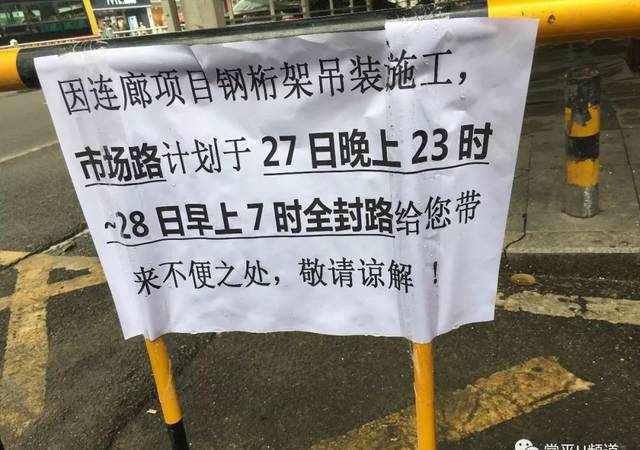 因连廊项目钢桁架吊装施工，
市场路计划于 27 日晚上 23 时
~28 日早上 7 时全封路给您带
来不便之处，敬请谅解！
常平U频道